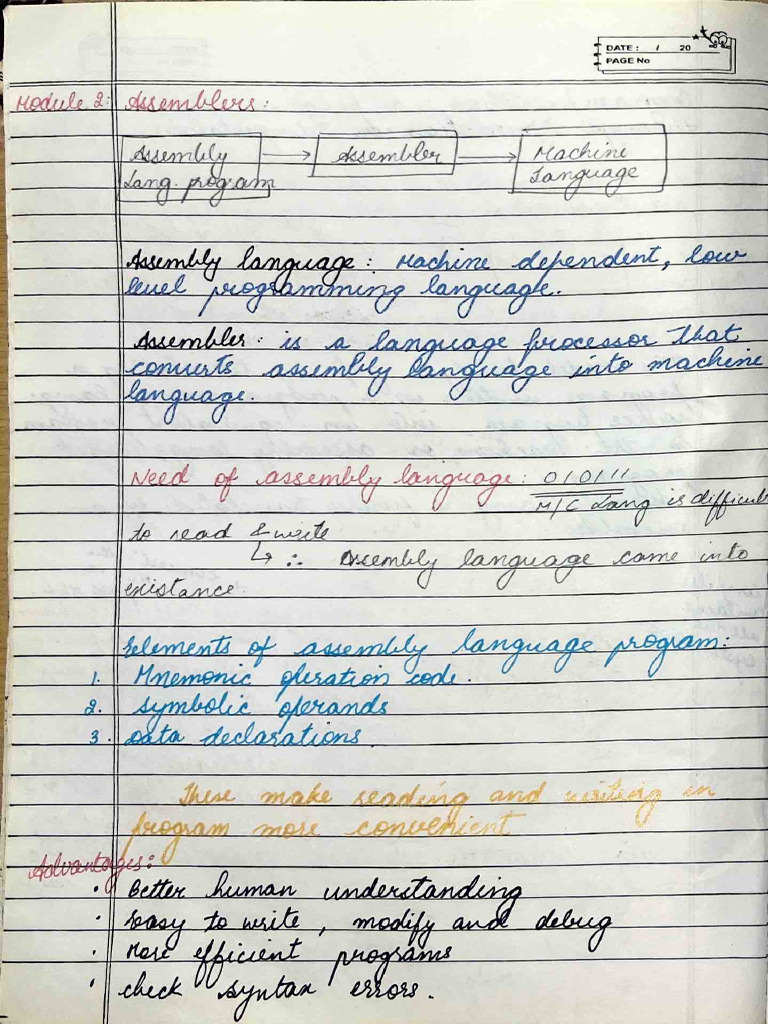 DATE : / 20
PAGE No
Module 2: Assemblers:
Assembly Assembler Machine
Lang. program Language
Assembly language: Machine dependent, low
level programming language.
Assembler: is a language processor that
converts assembly language into machine
language.
Need of assembly language: 010111
M/C Lang is difficult
to read & write
↳ ∴ Assembly language came into
existance.
Elements of assembly language program:
1. Mnemonic operation code.
2. Symbolic operands
3. Data declarations.
These make reading and writing in
program more convenient
Advantages:
• Better human understanding
• Easy to write, modify and debug
• More efficient programs
• check syntax errors.